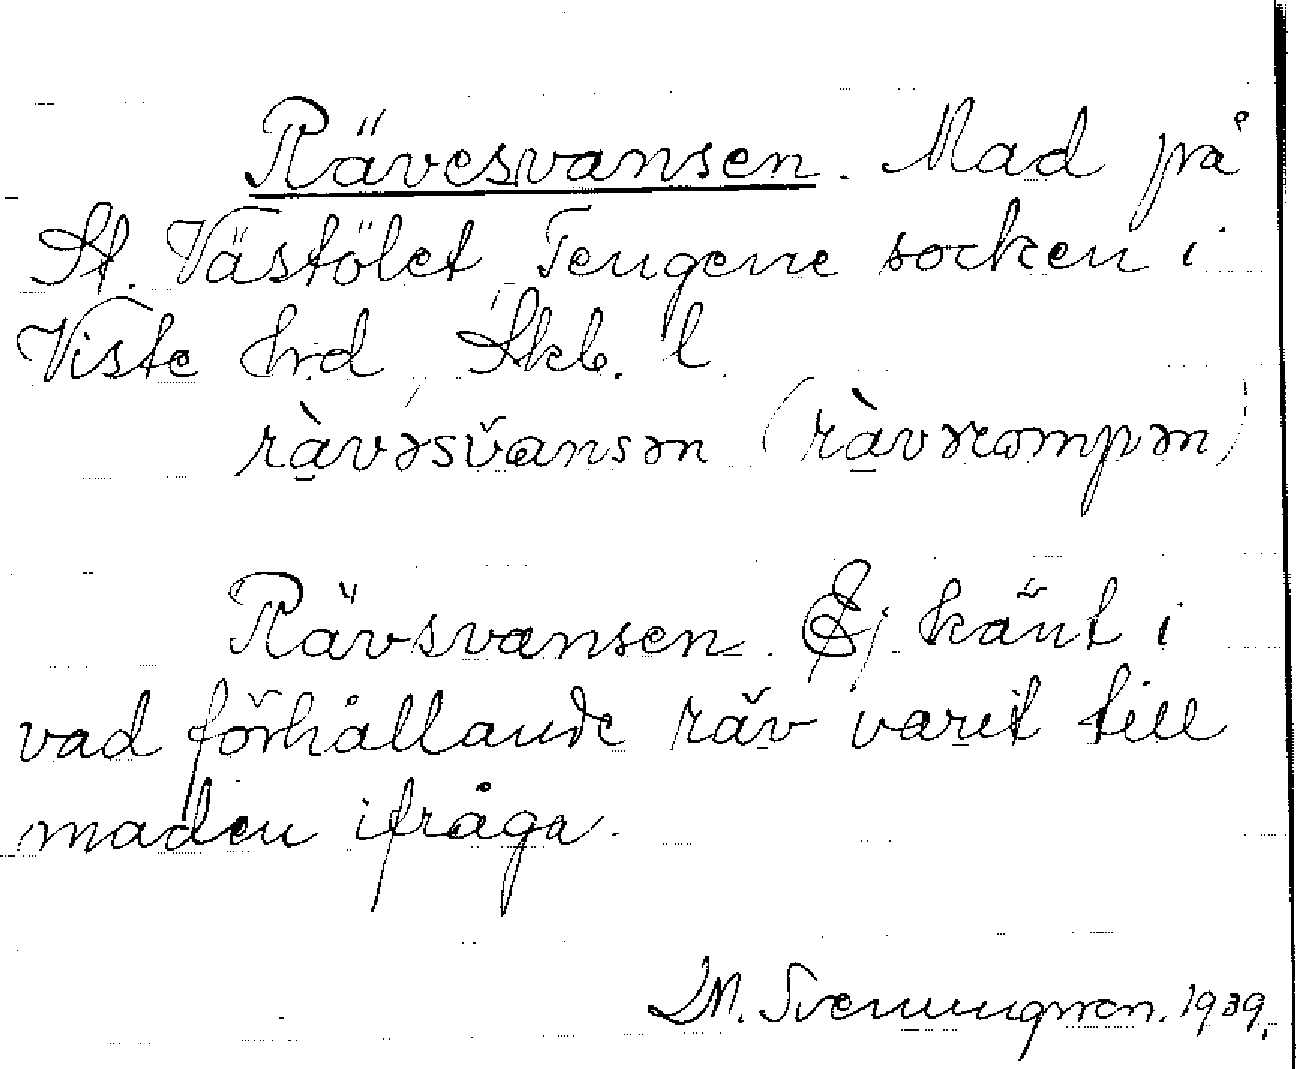 Rävesvansen. Mad på
St. Västölet, Tengene socken i
Viste hrd, Skb. l.
rävəsvansən (rävərompən)
Rävsvansen. Ej känt i
vad förhållande räv varit till
maden ifråga.
D.M. Svenungsson. 1939.